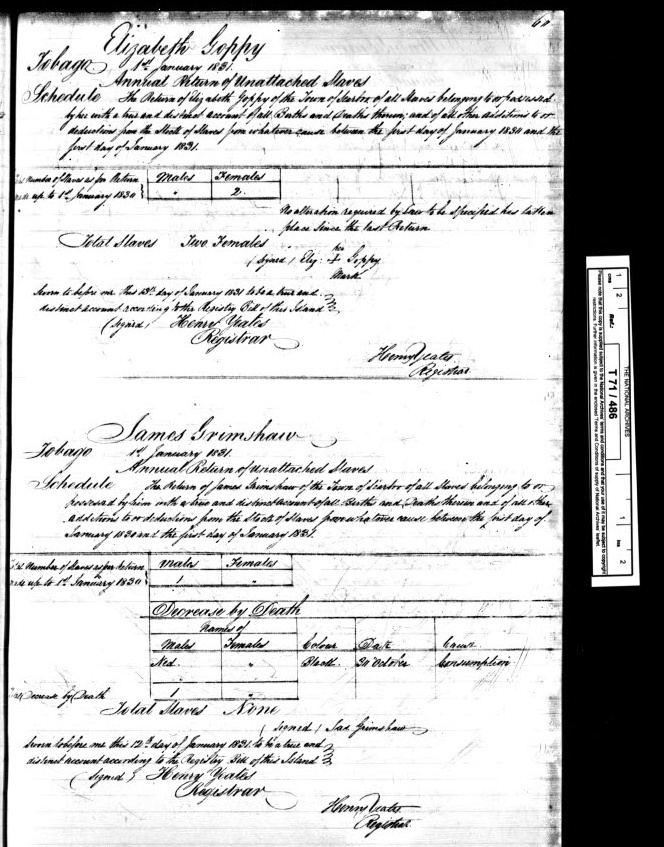 60
Elizabeth Goppy
Tobago 1st January 1831.
Annual Return of Unattached Slaves
Schedule The Return of Elizabeth Goppy of the Town of Scarbro' of all Slaves belonging to or possessed
by her with a true and distinct account of all Births and Deaths therein, and of all other additions to or
deductions from the Stock of Slaves from whatever cause between the first day of January 1830 and the
first day of January 1831.
Number of Slaves as per Return Males Females
made up to 1st January 1830 " 2.
No alteration required by Law to be specified has taken
place since the last Return
Total Slaves Two Females
her
(signed) Eliz. + Goppy
Mark
Sworn to before me this 13th day of January 1831 to be a true and
distinct account according to the Registry Bill of this Island
(signed) Henry Yeates
Registrar
Henry Yeates
Registrar
James Grimshaw
Tobago 1st January 1831.
Annual Return of Unattached Slaves
Schedule The Return of James Grimshaw of the Town of Scarbro' of all Slaves belonging to or
possessed by him with a true and distinct account of all Births and Deaths therein and of all other
additions to or deductions from the Stock of Slaves from whatever cause between the first day of
January 1830 and the first day of January 1831.
Number of Slaves as per Return Males Females
made up to 1st January 1830 1 "
Decrease by Death
Names of
Males Females Colour Date Cause
Ned " Black 20 October Consumption
Decrease by Death 1 "
Total Slaves None
(signed) Jas. Grimshaw
Sworn to before me this 12th day of January 1831. to be a true and
distinct account according to the Registry Bill of this Island
(signed) Henry Yeates
Registrar
Henry Yeates
Registrar
THE NATIONAL ARCHIVES
Ref.: T 71 / 486
cms 1 2
ins 1 2
Please note that this copy is supplied subject to the National Archives' terms and conditions and that your use of it may be subject to copyright
restrictions. Further information is given in the enclosed 'Terms and Conditions of supply of National Archives' leaflet